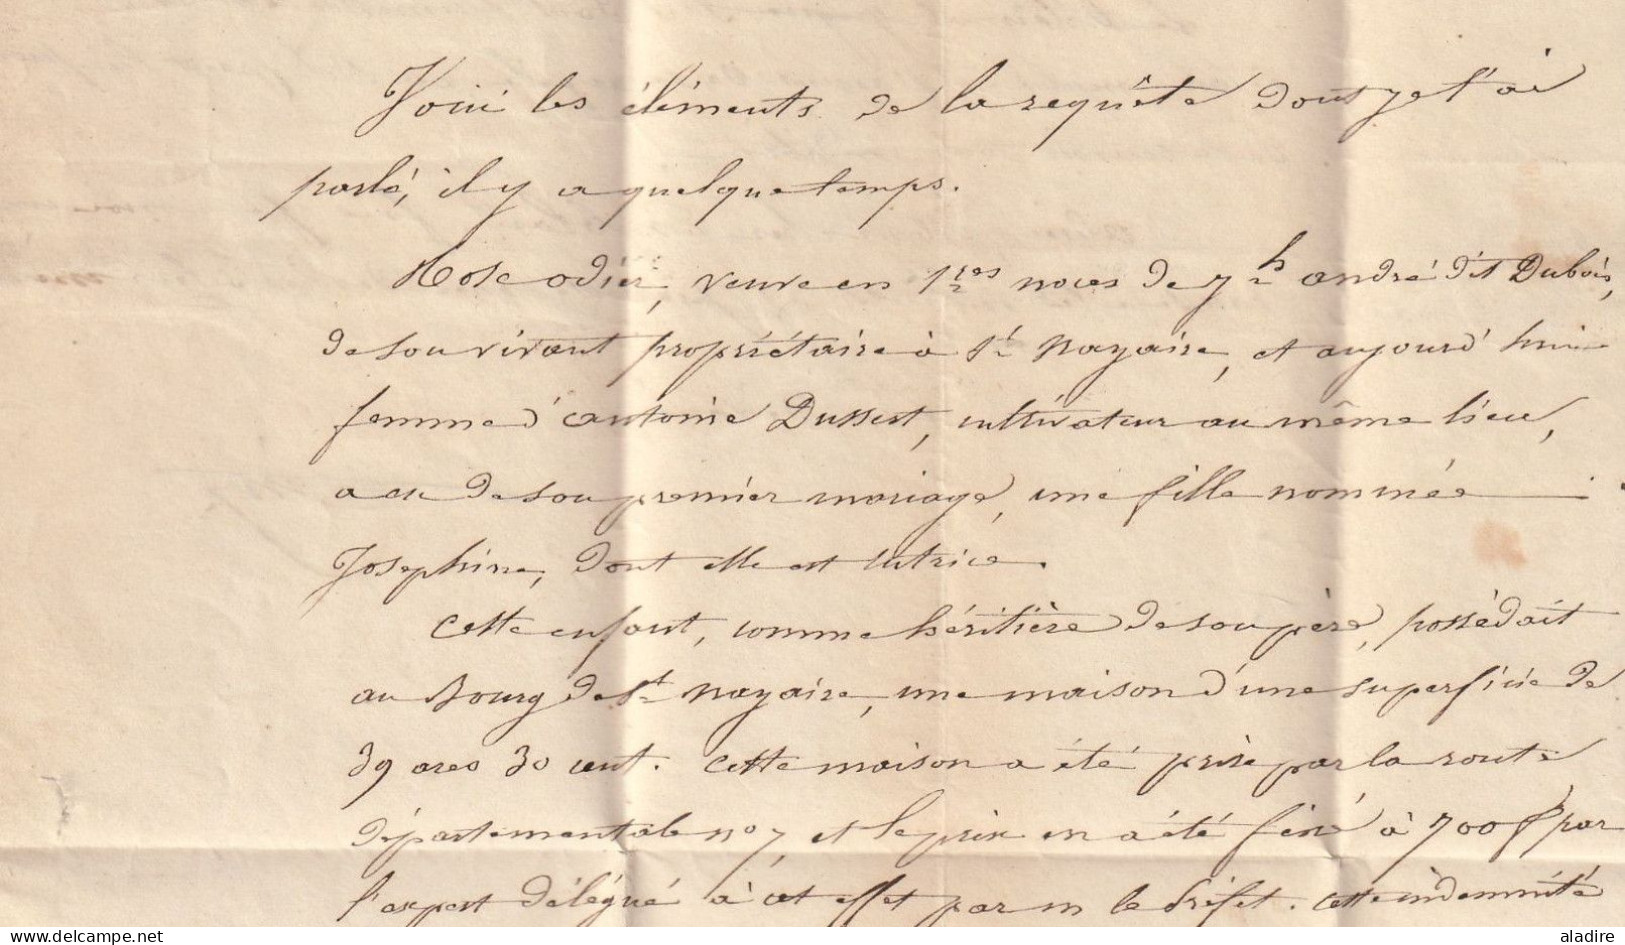 Voici les éléments de la requête dont je t'ai
parlé, il y a quelque temps.
Rose Odier, veuve en 1res noces de Jh André dit Dubois,
de son vivant propriétaire à St Nazaire, et aujourd'hui
femme d'Antoine Dussert, cultivateur au même lieu,
a eu de son premier mariage, une fille nommée
Josephine, dont elle est tutrice.
Cette enfant, comme héritière de son père, possédait
au Bourg de St Nazaire, une maison d'une superficie de
39 ares 30 cent. Cette maison a été prise par la route
départementale no 7, et le prix en a été fixé à 700 f par
l'expert délégué à cet effet par m le Préfet. Cette indemnité
aladire